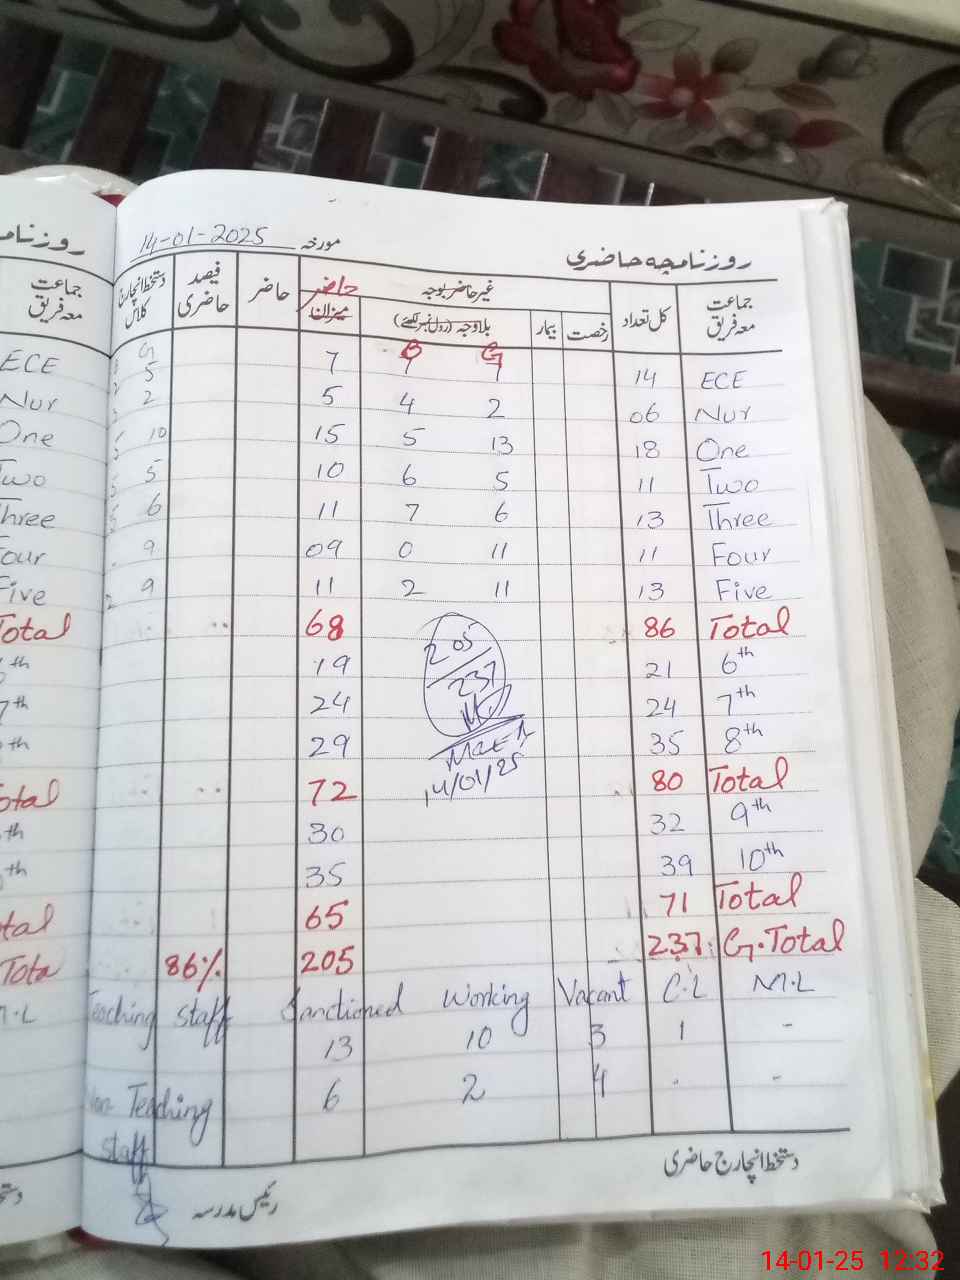 روزنامچہ حاضری مورخہ 14-01-2025
جماعت معہ فریق کل تعداد غیر حاضر بوجہ حاضر میزان حاضر فیصد حاضری دستخط انچارج کلاس
رخصت بیمار بلاوجہ (رول نمبر لکھئے)
B G G
ECE 14 7 7 7 5
Nur 06 2 4 5 2
One 18 13 5 15 10
Two 11 5 6 10 5
Three 13 6 7 11 6
Four 11 11 0 09 9
Five 13 11 2 11 9
Total 86 68
6th 21 19
7th 24 24
8th 35 29
Total 80 72
205/237
14/01/25
9th 32 30
10th 39 35
Total 71 65
G.Total 237 205 86%
Teaching staff Sanctioned Working Vacant C.L M.L
13 10 3 1 -
Non-Teaching staff 6 2 4 . -
دستخط انچارج حاضری
رئیس مدرسہ
روزنامچہ
جماعت معہ فریق
ECE
Nur
One
Two
Three
Four
Five
Total
th
7th
th
Total
th
th
Total
Total
M.L
14-01-25 12:32